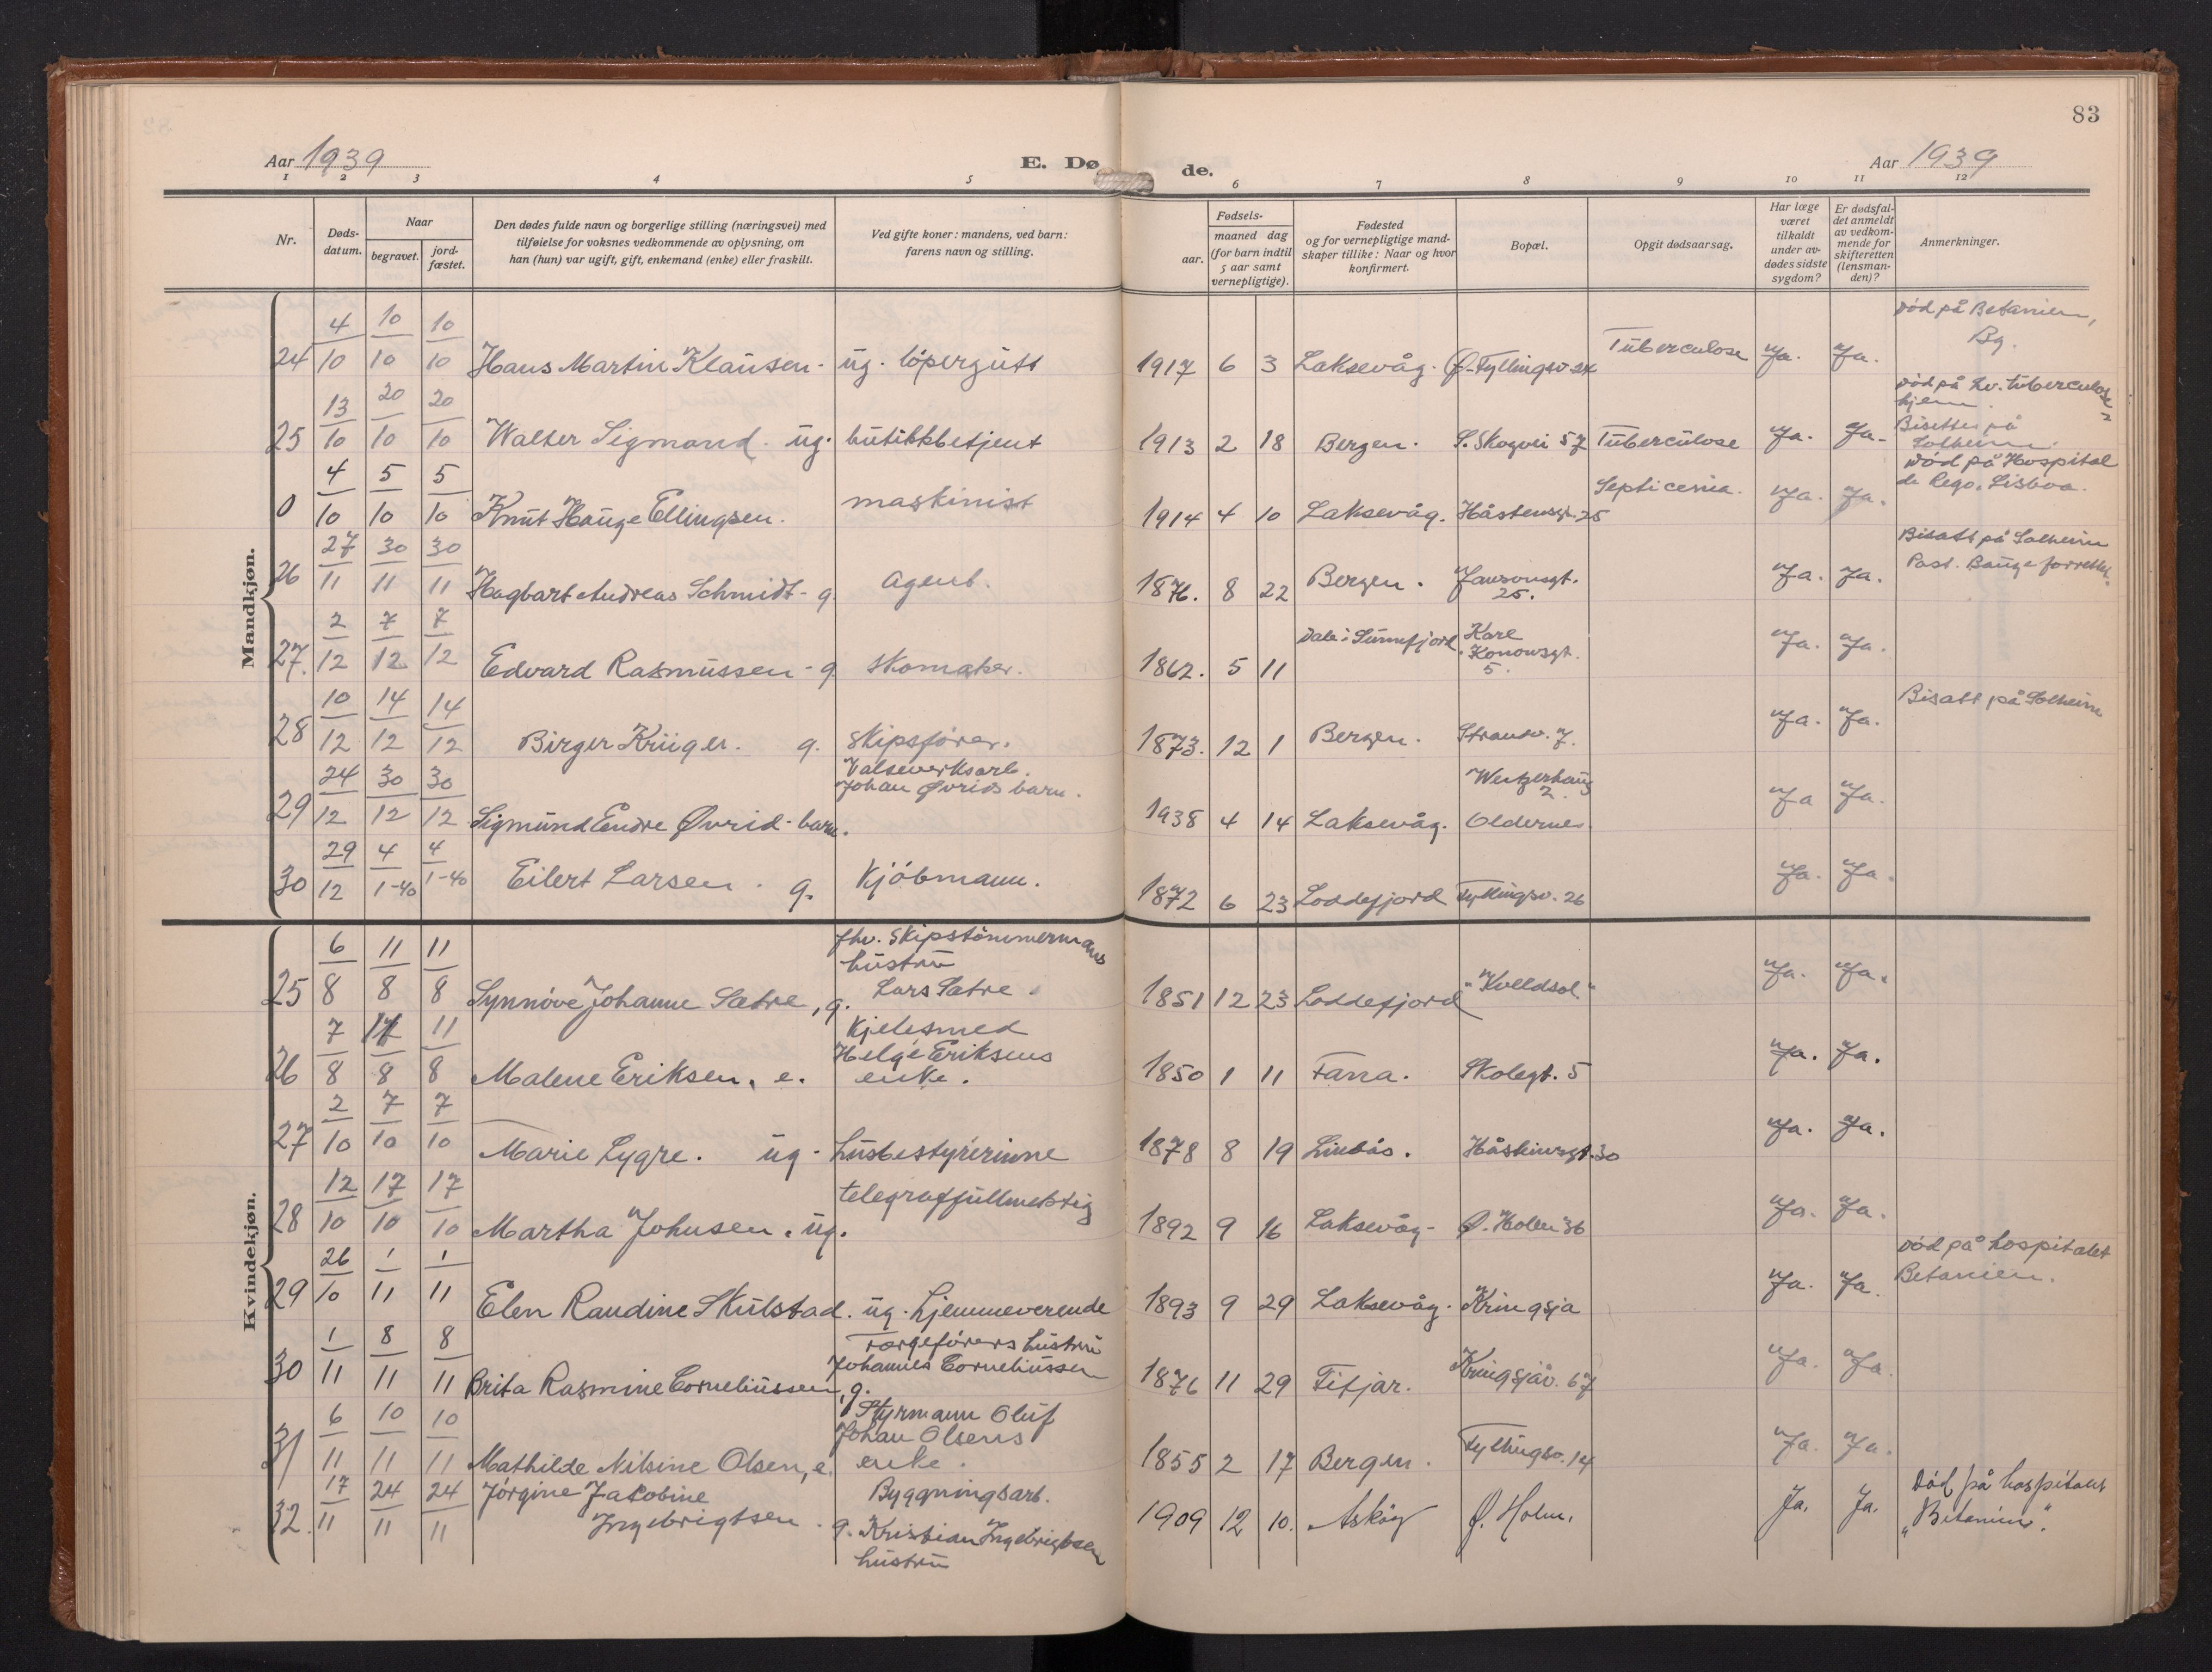 83
Aar 1939
E. Dø de.
Aar 1939
1 2 3 4 5 6 7 8 9 10 11 12
Nr.
Døds-
datum.
Naar
begravet.
jord-
fæstet.
Den dødes fulde navn og borgerlige stilling (næringsvei) med
tilføielse for voksnes vedkommende av oplysning, om
han (hun) var ugift, gift, enkemand (enke) eller fraskilt.
Ved gifte koner: mandens, ved barn:
farens navn og stilling.
Fødsels-
aar.
maaned dag
(for barn indtil
5 aar samt
vernepligtige).
Fødested
og for vernepligtige mand-
skaper tillike: Naar og hvor
konfirmert.
Bopæl.
Opgit dødsaarsag.
Har læge
været
tilkaldt
under av-
dødes sidste
sygdom?
Er dødsfal-
det anmeldt
av vedkom-
mende for
skifteretten
(lensman-
den)?
Anmerkninger.
Mandkjøn.
24 4/10 10/10 10/10 Hans Martin Klausen - ug. løpergutt 1917 6 3 Laksevåg. Ø. Fyllingsv. 24 Tuberculose Ja. Ja. Død på Betanien,
Bg.
25 13/10 20/10 20/10 Walter Sigmand. ug. butikkbetjent 1913 2 18 Bergen. S. Skogvei 57 Tuberculose Ja. Ja. død på tuberculose
hjem.
Bisettes på
Solheim.
0 4/10 5/10 5/10 Knut Hauge Ellingsen. maskinist 1914 4 10 Laksevåg. Håstensgt. 25 Septicemia. Ja. Ja. Død på Hospital
de Rego, Lisboa.
26 27/11 30/11 30/11 Hagbart Andreas Schmidt - g. agent. 1876. 8 22 Bergen. Jansonsgt.
25. Ja. Ja. Bisatt på Solheim
Past. Bauge forrettet.
27. 2/12 7/12 7/12 Edvard Rasmussen - g. skomaker. 1862. 5 11 Dale i Sunnfjord. Karl
Konowsgt.
5. Ja. Ja.
28 10/12 14/12 14/12 Birger Krüger. g. skipsfører. 1873. 12 1 Bergen. Strandv. 7. Ja. Ja. Bisatt på Solheim
29 24/12 30/12 30/12 Sigmund Endre Øvrid - barn. Valseverksarb.
Johan Øvrids barn. 1938 4 14 Laksevåg. Wentzerhaug
2.
Oldernes Ja Ja.
30 29/12 4/1-40 4/1-40 Eilert Larsen. g. Kjøbmann. 1872 6 23 Loddefjord Fyllingsv. 26 Ja. Ja.
Kvindekjøn.
25 6/8 11/8 11/8 Synnøve Johanne Sætre, g. fhv. Skipstømmermanns
hustru
Lars Sætre. 1851 12 23 Loddefjord "Kveldsol" Ja. Ja.
26 7/8 11/8 11/8 Malene Eriksen, e. Kjelesmed
Helge Eriksens
enke. 1850 1 11 Fana. Skolegt. 5 Ja. Ja.
27 2/10 7/10 7/10 Marie Lygre. ug. husbestyrerinne 1878 8 19 Lindås. Håsteinsgt. 30 Ja. Ja.
28 12/10 17/10 17/10 Martha Johnsen. ug. telegraffullmektig 1892 9 16 Laksevåg - Ø. Holen 36 Ja. Ja.
29 26/10 1/11 1/11 Elen Raudine Skulstad. ug. hjemmeverende 1893 9 29 Laksevåg. Kringsjå Ja. Ja. Død på hospitalet
Betanien.
30 1/11 8/11 8/11 Brita Rasmine Corneliussen, g. Færgeførers hustru
Johannes Corneliussen 1876 11 29 Fitjar. Kringsjåv. 67 Ja. Ja.
31 6/11 10/11 10/11 Mathilde Nilsine Olsen, e. Styrmann Oluf
Johan Olsens
enke. 1855 2 17 Bergen. Fyllingsv. 14 Ja. Ja.
32. 17/11 24/11 24/11 Jørgine Jakobine
Ingebrigtsen. g. Byggningsarb.
Kristian Ingebrigtsen
hustru 1909 12 10. Askøy Ø. Holm. Ja. Ja. Død på hospitalet
"Betanien".